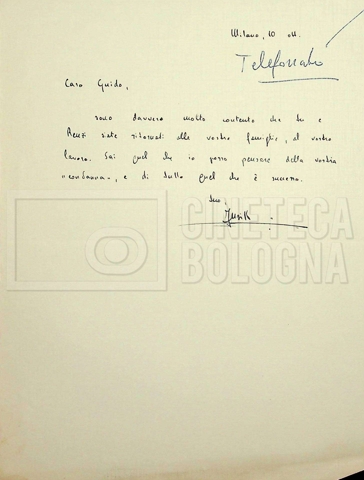 Milano, 10 ott.
Telefonato
Caro Guido,
sono davvero molto contento che tu e
Renzi siete ritornati alle vostre famiglie, al vostro
lavoro. Sai quel che io posso pensare della vostra
«condanna», e di tutto quel che è successo.
tuo
CINETECA
BOLOGNA